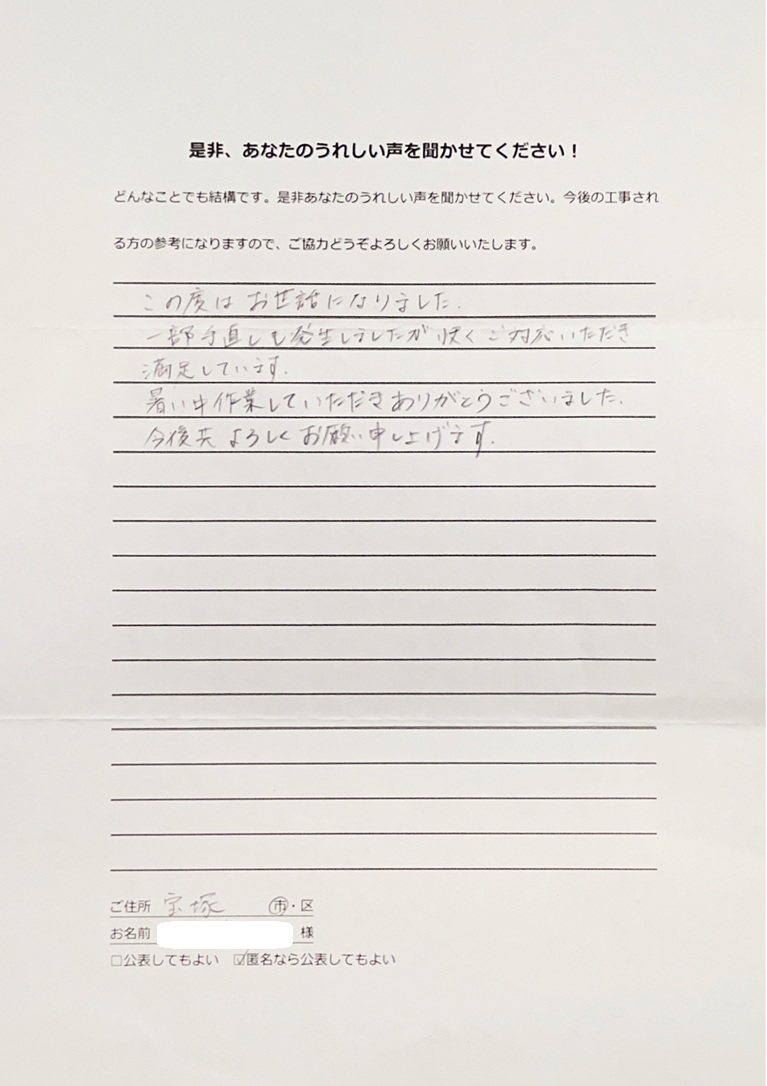 是非、あなたのうれしい声を聞かせてください！
どんなことでも結構です。是非あなたのうれしい声を聞かせてください。今後の工事され
る方の参考になりますので、ご協力どうぞよろしくお願いいたします。
この度は お世話になりました.
一部手直しも発生しましたが 快くご対応いただき
満足しています.
暑い中作業していただきありがとうございました.
今後共 よろしく お願い申し上げます.
ご住所 宝塚 市・区
お名前 様
□公表してもよい ☑匿名なら公表してもよい